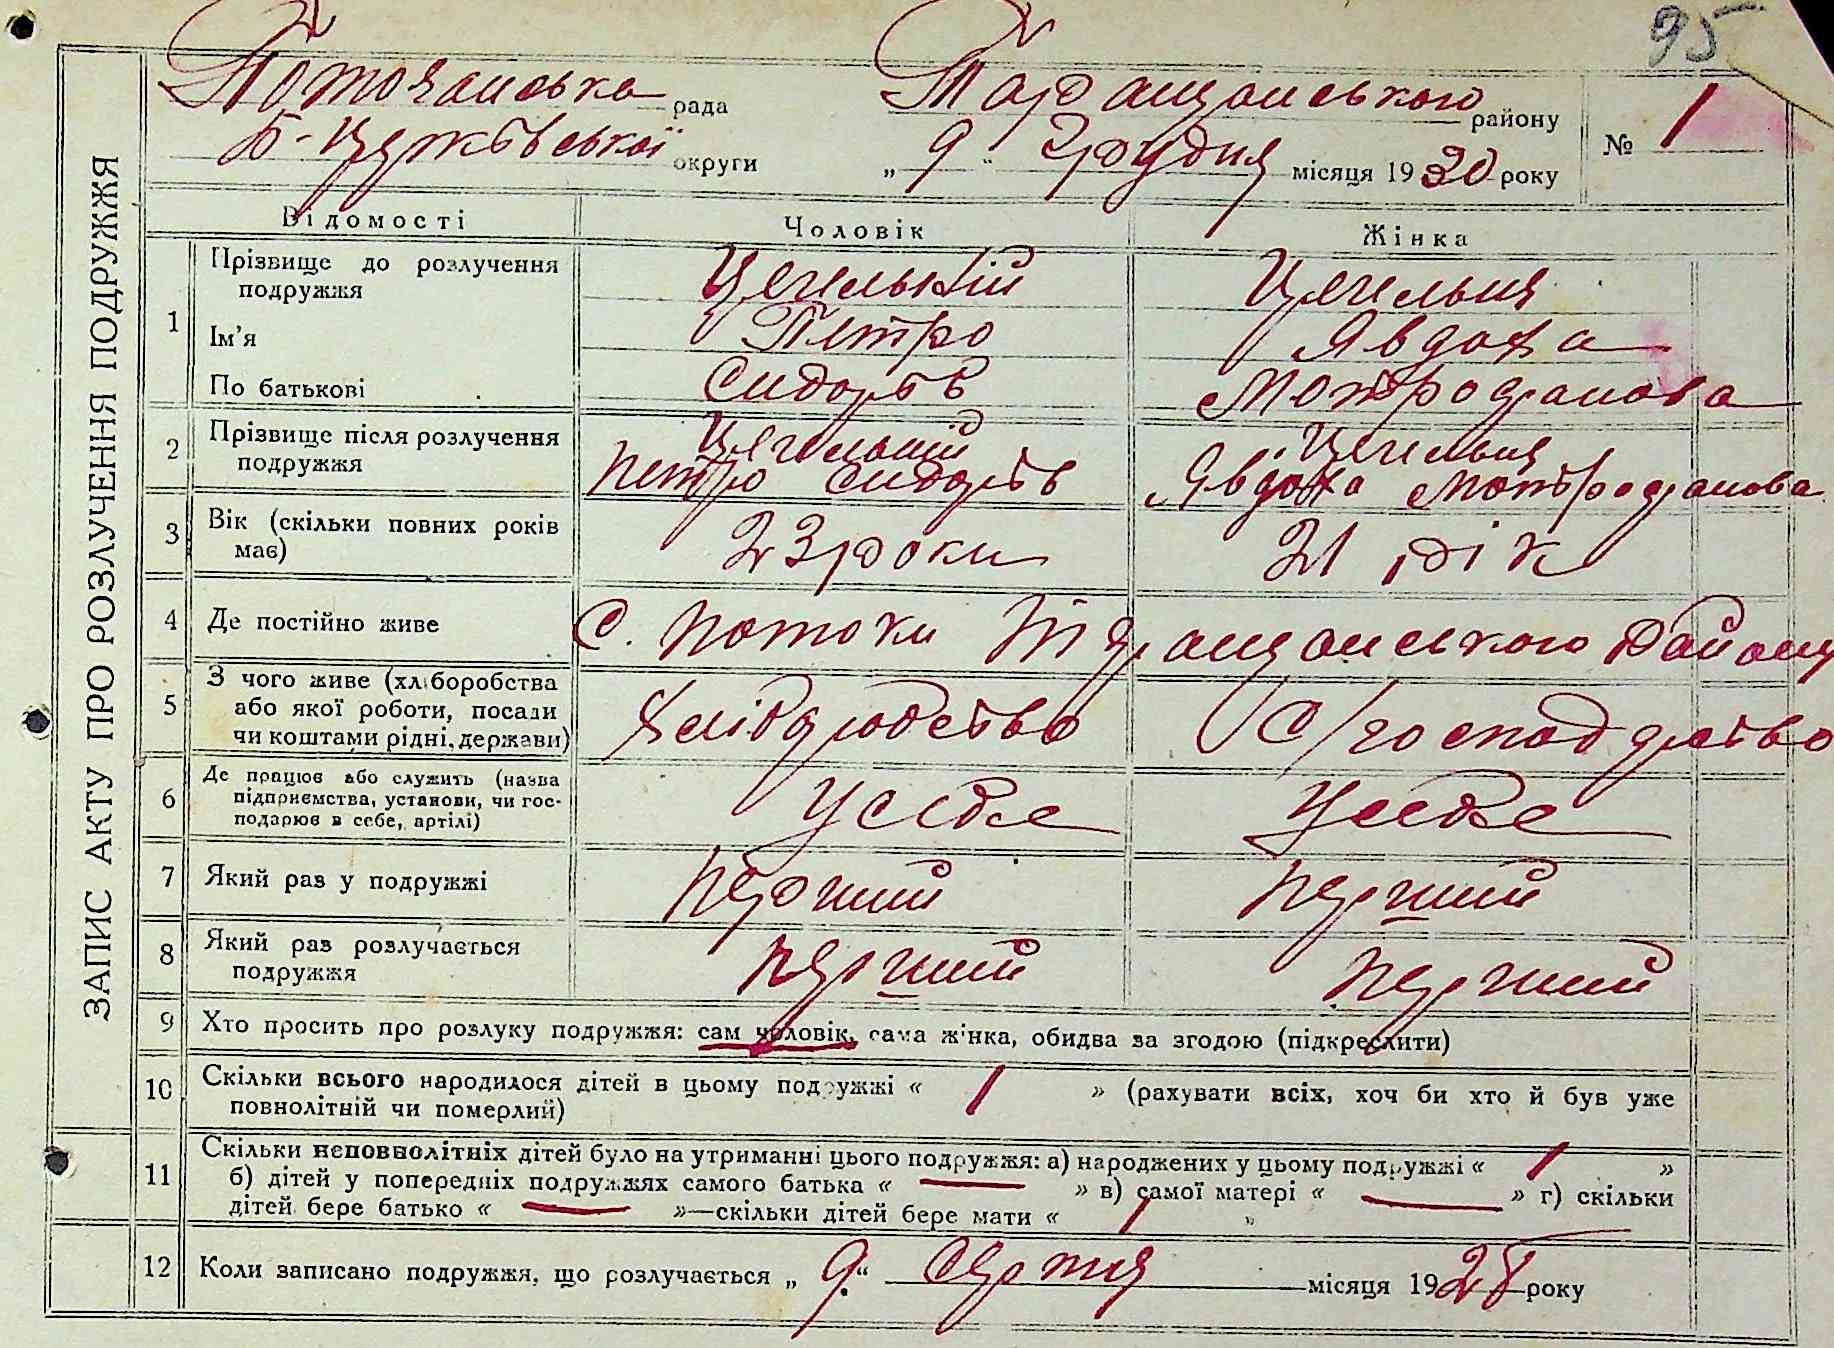 95
ЗАПИС АКТУ ПРО РОЗЛУЧЕННЯ ПОДРУЖЖЯ
Поточанська рада Таращанського району № 1
Б-Церківської округи „ 9 “ Грудня місяця 1930 року
Відомості Чоловік Жінка
1 Прізвище до розлучення подружжя Цегельний Цегельня
Ім'я Петро Явдоха
По батькові Сидорів
2 Прізвище після розлучення Цегельний Цегельня
подружжя Петро Сидорів Явдоха
3 Вік (скільки повних років має) 23 роки 21 рік
4 Де постійно живе С. Потоки Таращанського Району
5 З чого живе (хліборобства
або якої роботи, посади
чи коштами рідні, держави) Хліборобство С/господарство
6 Де працює або служить (назва
підприємства, установи, чи гос-
подарює в себе, артілі) У себе У себе
7 Який раз у подружжі Перший Перший
8 Який раз розлучається
подружжя Перший Перший
9 Хто просить про розлуку подружжя: сам чоловік, сама жінка, обидва за згодою (підкреслити)
10 Скільки всього народилося дітей в цьому подружжі « 1 » (рахувати всіх, хоч би хто й був уже
повнолітній чи померлий)
11 Скільки неповнолітніх дітей було на утриманні цього подружжя: а) народжених у цьому подружжі « 1 »
б) дітей у попередніх подружжях самого батька « — » в) самої матері « — » г) скільки
дітей бере батько « — »—скільки дітей бере мати « 1 »
12 Коли записано подружжя, що розлучається „ 9 “ Серпня місяця 1928 року